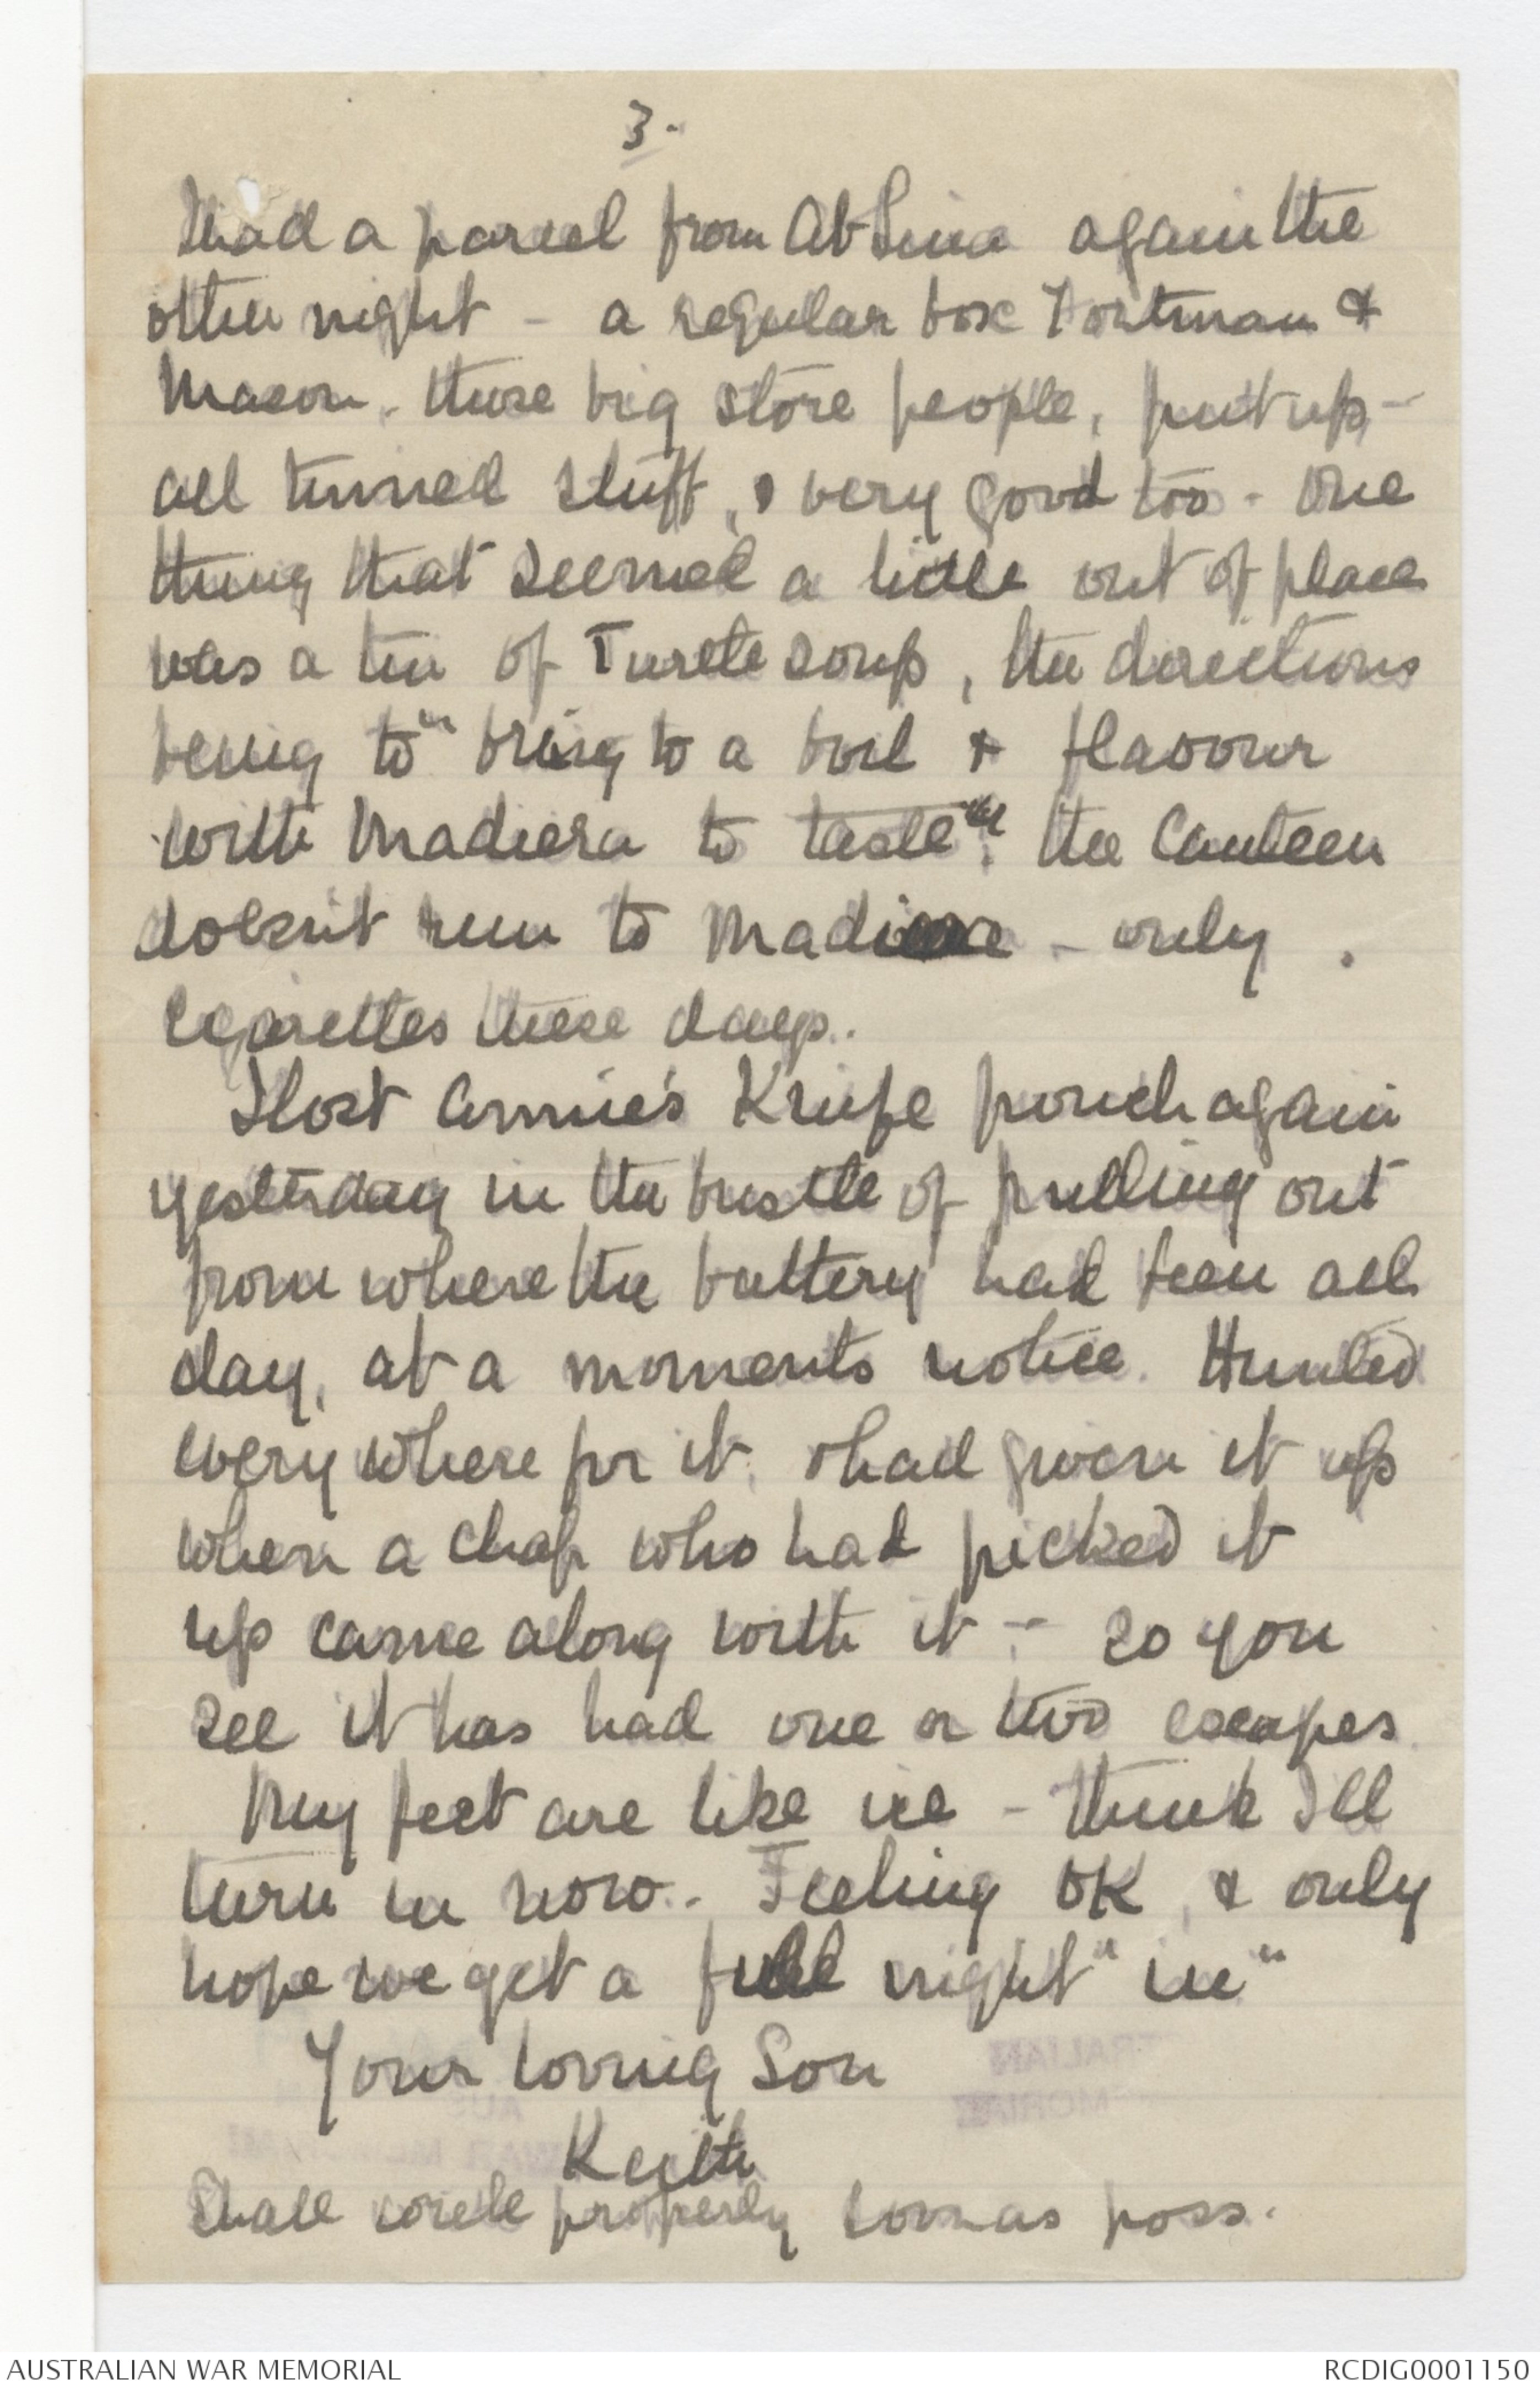 3.
I had a parcel from again the
other night - a regular box Fortman &
Mason, those big store people, put up -
all tinned stuff, & very good too - One
thing that seemed a little out of place
was a tin of Turtle soup, the directions
being to " bring to a boil & flavour
with Madiera to taste". the Canteen
doesn't run to Madiera - only
Cigarettes these days.
I lost Annie's Knife pouch again
yesterday in the bustle of pulling out
from where the battery had been all
day, at a moments notice. Hunted
every where for it, & had given it up
when a chap who had picked it
up came along with it - so you
see it has had one or two escapes
My feet are like ice - think I'll
turn in now. Feeling OK, & only
hope we get a full night "in"
Your loving Son
Keith
Shall write properly soon as poss.
AUSTRALIAN WAR MEMORIAL
RCDIG0001150